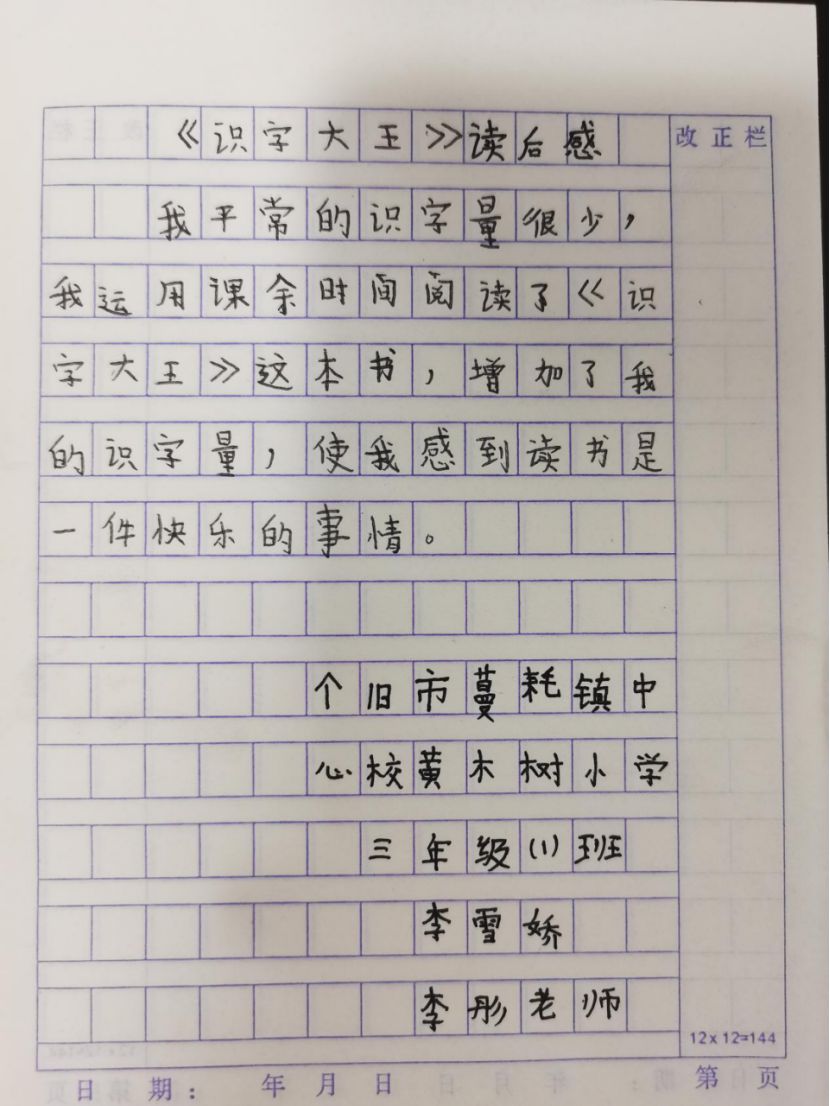 《识字大王》读后感
改正栏
我平常的识字量很少，
我运用课余时间阅读了《识
字大王》这本书，增加了我
的识字量，使我感到读书是
一件快乐的事情。
个旧市蔓耗镇中
心校黄木树小学
三年级(1)班
李雪娇
李彤老师
12×12=144
日 期： 年 月 日 第 页